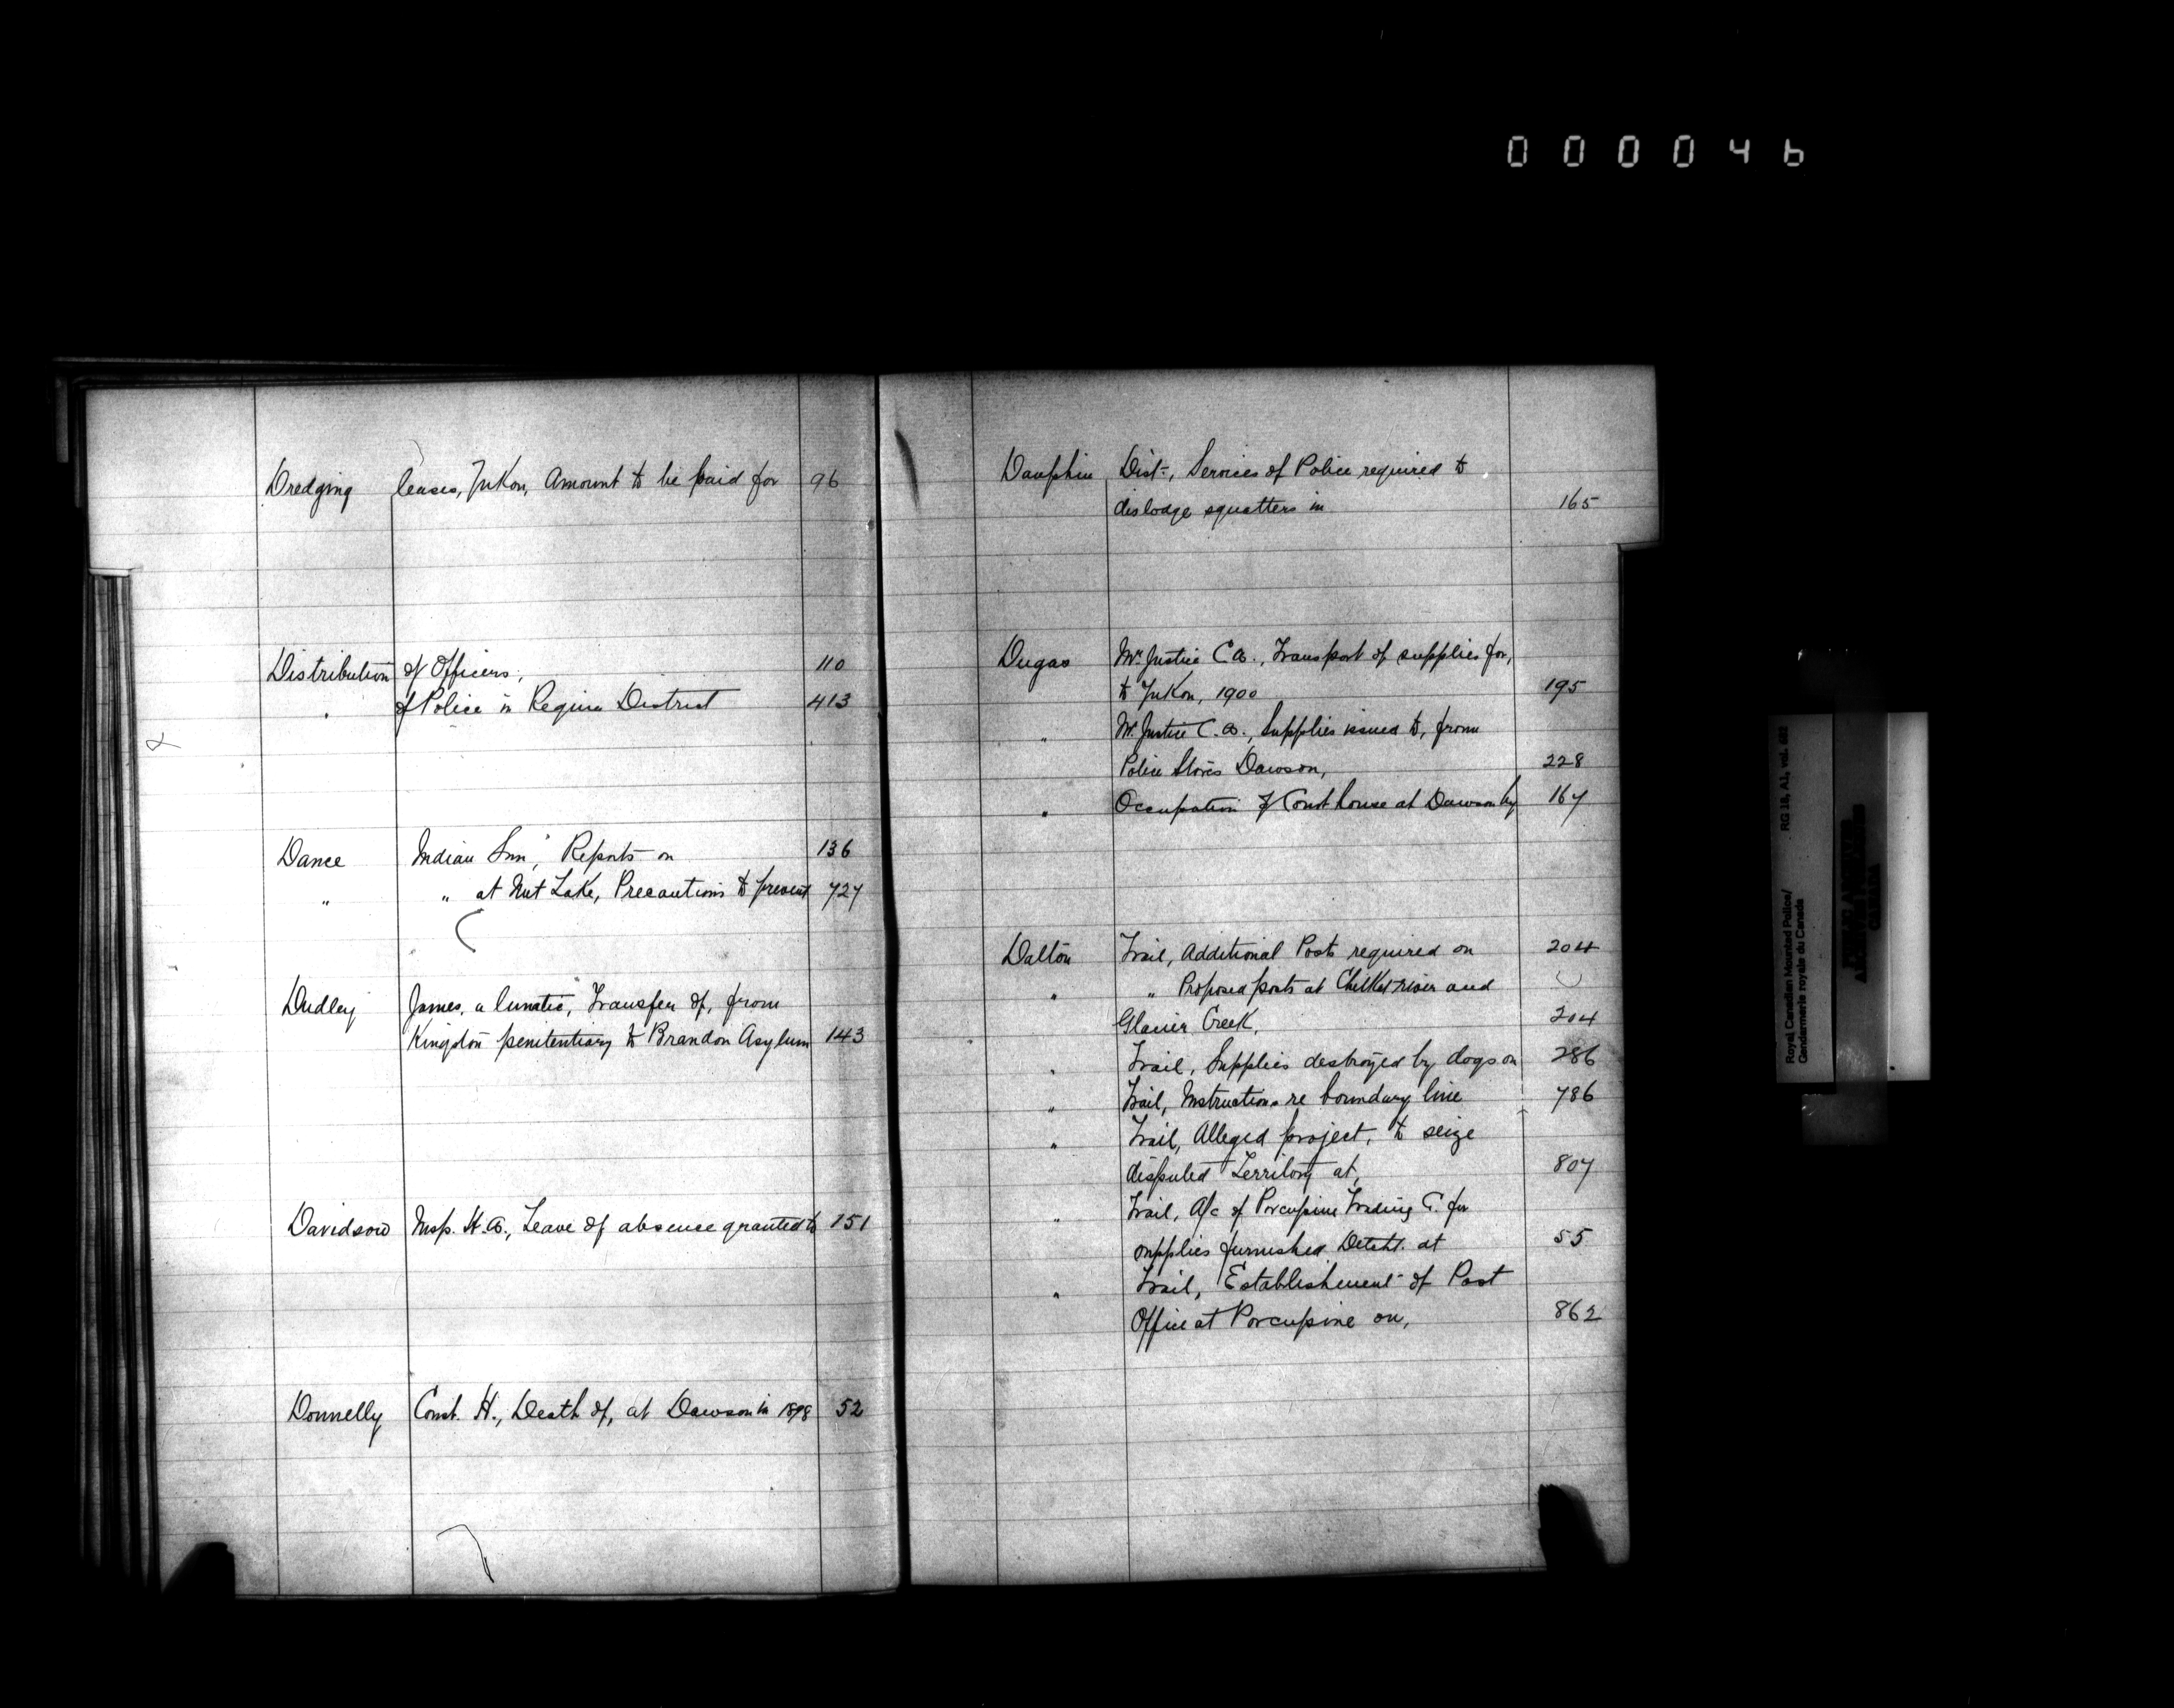 000046
Dredging leases, Yukon, Amount to be paid for 96
Distribution of Officers, 110
" of Police in Regina District 413
Dance Indian Sun, Reports on 136
" " at Nut Lake, Precautions to prevent 727
Dudley James, a lunatic, Transfer of, from
Kingston penitentiary to Brandon Asylum 143
Davidson Insp. H.A., Leave of absence granted to 151
Donnelly Const. H., Death of, at Dawson in 1898 52
Dauphin Dist., Services of Police required to
dislodge squatters in 165
Dugas Mr Justice C.A., Transport of supplies for,
to Yukon, 1900 195
" Mr. Justice C.A., Supplies issued to, from
Police Stores Dawson, 228
" Occupation of Court house at Dawson by 167
Dalton Trail, Additional Posts required on 204
" " Proposed posts at Chilkat river and
Glacier Creek, 204
" Trail, Supplies destroyed by dogs on 286
" Trail, Instructions re boundary line 786
" Trail, Alleged project, to seize
disputed Territory at, 807
" Trail, A/c of Porcupine Trading C. for
supplies furnished Detcht. at 55
" Trail, Establishment of Post
Office at Porcupine on, 862
Royal Canadian Mounted Police/ RG 18, A1, vol. 682
Gendarmerie royale du Canada
PUBLIC ARCHIVES
CANADA